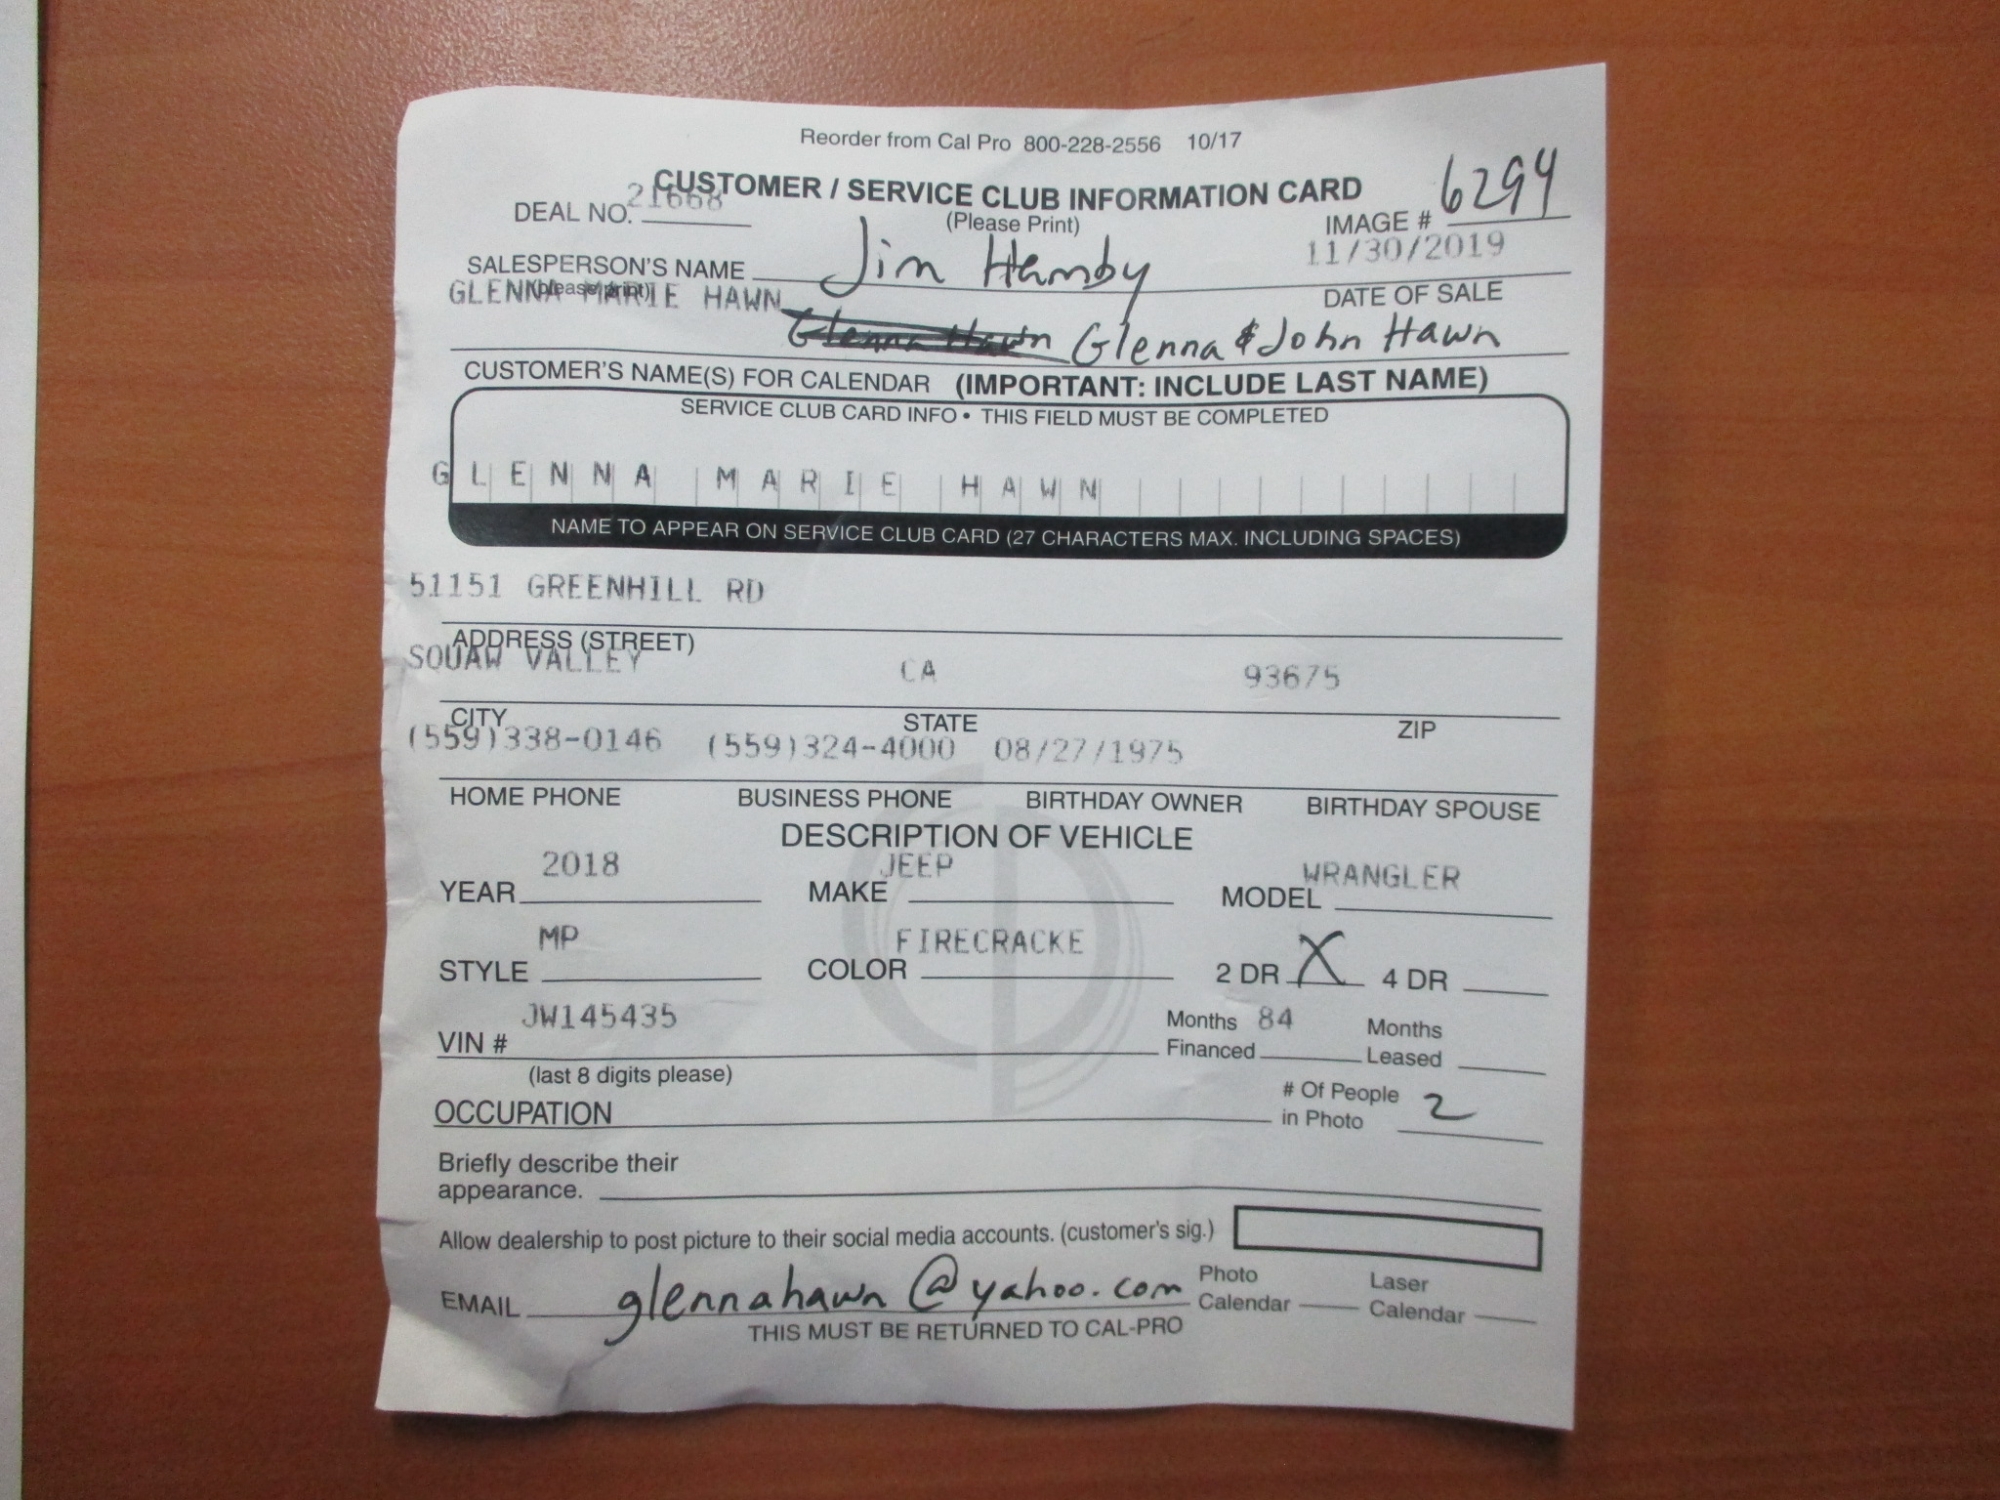 Reorder from Cal Pro 800-228-2556 10/17
CUSTOMER / SERVICE CLUB INFORMATION CARD
DEAL NO. 21668 (Please Print) IMAGE # 6294
SALESPERSON'S NAME Jim Hamby 11/30/2019
(please print) DATE OF SALE
GLENNA MARIE HAWN Glenna Hawn Glenna & John Hawn
CUSTOMER'S NAME(S) FOR CALENDAR (IMPORTANT: INCLUDE LAST NAME)
SERVICE CLUB CARD INFO • THIS FIELD MUST BE COMPLETED
GLENNA MARIE HAWN
NAME TO APPEAR ON SERVICE CLUB CARD (27 CHARACTERS MAX. INCLUDING SPACES)
51151 GREENHILL RD
ADDRESS (STREET)
SQUAW VALLEY CA 93675
CITY STATE ZIP
(559)338-0146 (559)324-4000 08/27/1975
HOME PHONE BUSINESS PHONE BIRTHDAY OWNER BIRTHDAY SPOUSE
DESCRIPTION OF VEHICLE
YEAR 2018 MAKE JEEP MODEL WRANGLER
STYLE MP COLOR FIRECRACKE 2 DR X 4 DR
VIN # JW145435 Months Financed 84 Months Leased
(last 8 digits please)
OCCUPATION # Of People in Photo 2
Briefly describe their
appearance.
Allow dealership to post picture to their social media accounts. (customer's sig.)
EMAIL glennahawn@yahoo.com Photo Calendar Laser Calendar
THIS MUST BE RETURNED TO CAL-PRO